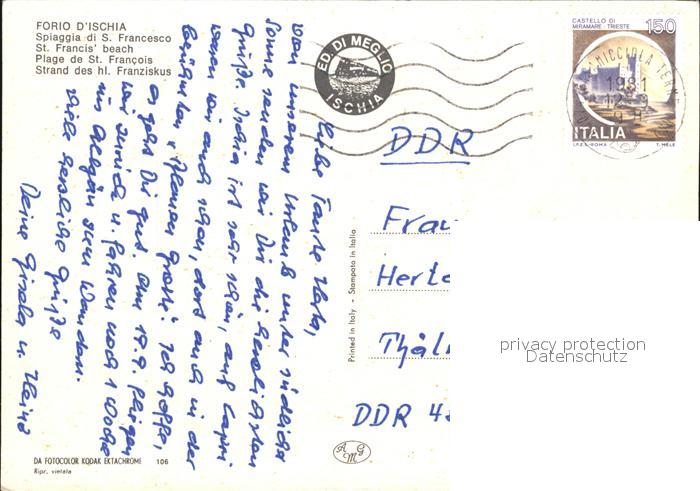 FORIO D'ISCHIA
Spiaggia di S. Francesco
St. Francis' beach
Plage de St. François
Strand des hl. Franziskus
ED. DI MEGLIO
ISCHIA
CASTELLO DI
MIRAMARE - TRIESTE
150
1981
ITALIA
I.P.Z.S.-ROMA
T. MELE
Liebe Tante Herta,
von unserem Urlaub unter südlicher
Sonne senden wir Dir die herzlichsten
Grüße. Ischia ist sehr schön, auf Capri
waren wir auch schon, dort auch in der
berühmten blauen Grotte. Ich hoffe,
es geht Dir gut. Am 19.9. fliegen
wir zurück u. fahren noch 1 Woche
ins Allgäu zum Wandern.
Viele herzliche Grüße
Deine Gisela u. Heinz
DDR
Frau
Herte
Thäl
DDR 4
Printed in Italy - Stampato in Italia
AMG
privacy protection
Datenschutz
DA FOTOCOLOR KODAK EKTACHROME 106
Ripr. vietata